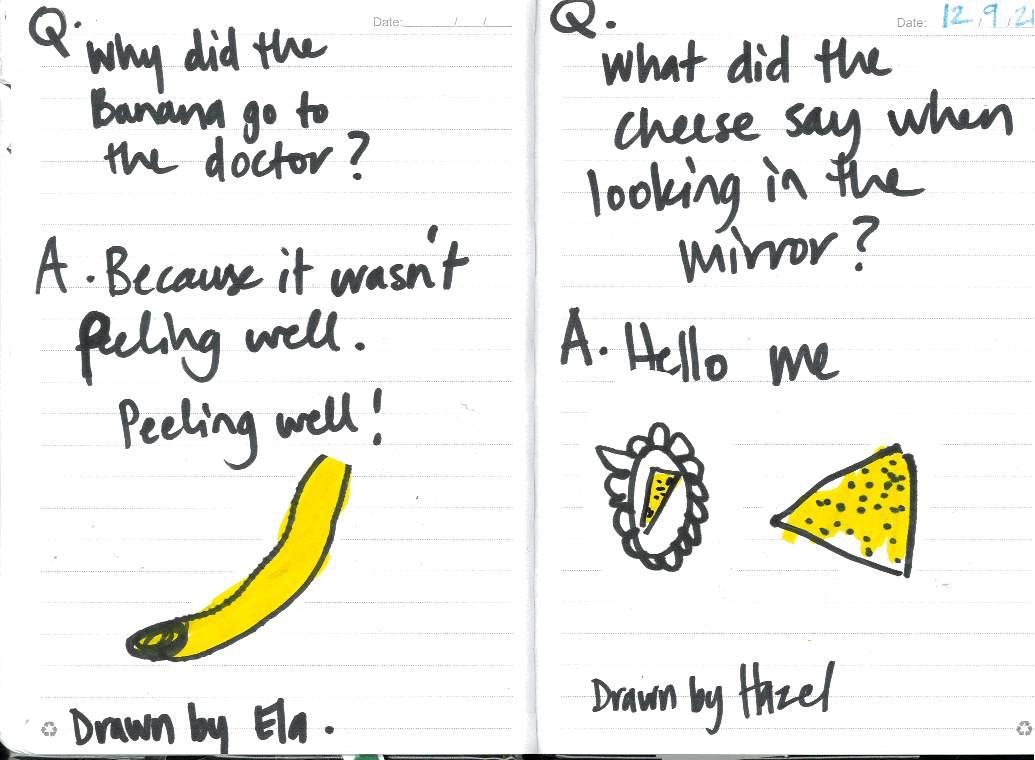 Date: / /
Q.
Why did the
Banana go to
the doctor?
A. Because it wasn't
peeling well.
Peeling well!
Drawn by Ela.
Date: 12 / 9 / 21
Q.
What did the
cheese say when
looking in the
mirror?
A. Hello me
Drawn by Hazel